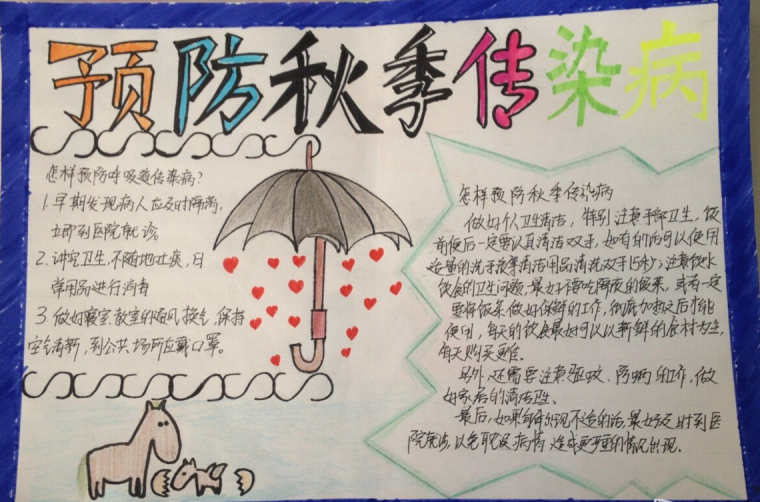 预防秋季传染病
怎样预防呼吸道传染病?
1.早期发现病人应及时隔离,
立即到医院就诊。
2.讲究卫生,不随地吐痰,日
常用品进行消毒
3.做好寝室、教室的通风换气,保持
空气清新,到公共场所应戴口罩。
怎样预防秋季传染病
做好个人卫生清洁,特别注意手部卫生,饭
前便后一定要认真清洁双手,如有的话可以使用
适量的洗手液等清洁用品清洗双手15秒;注意饮水
饮食的卫生问题,最好不要吃隔夜的饭菜,或者一定
要将饭菜做好保鲜的工作,彻底加热之后才能
使用,每天的饮食最好可以以新鲜的食材为主,
每天购买
另外,还需要注意驱蚊、防病的工作,做
好家居的清洁卫生。
最后,如果有出现不适的话,最好及时到医
院就诊,以免耽误病情,造成更严重的情况出现。